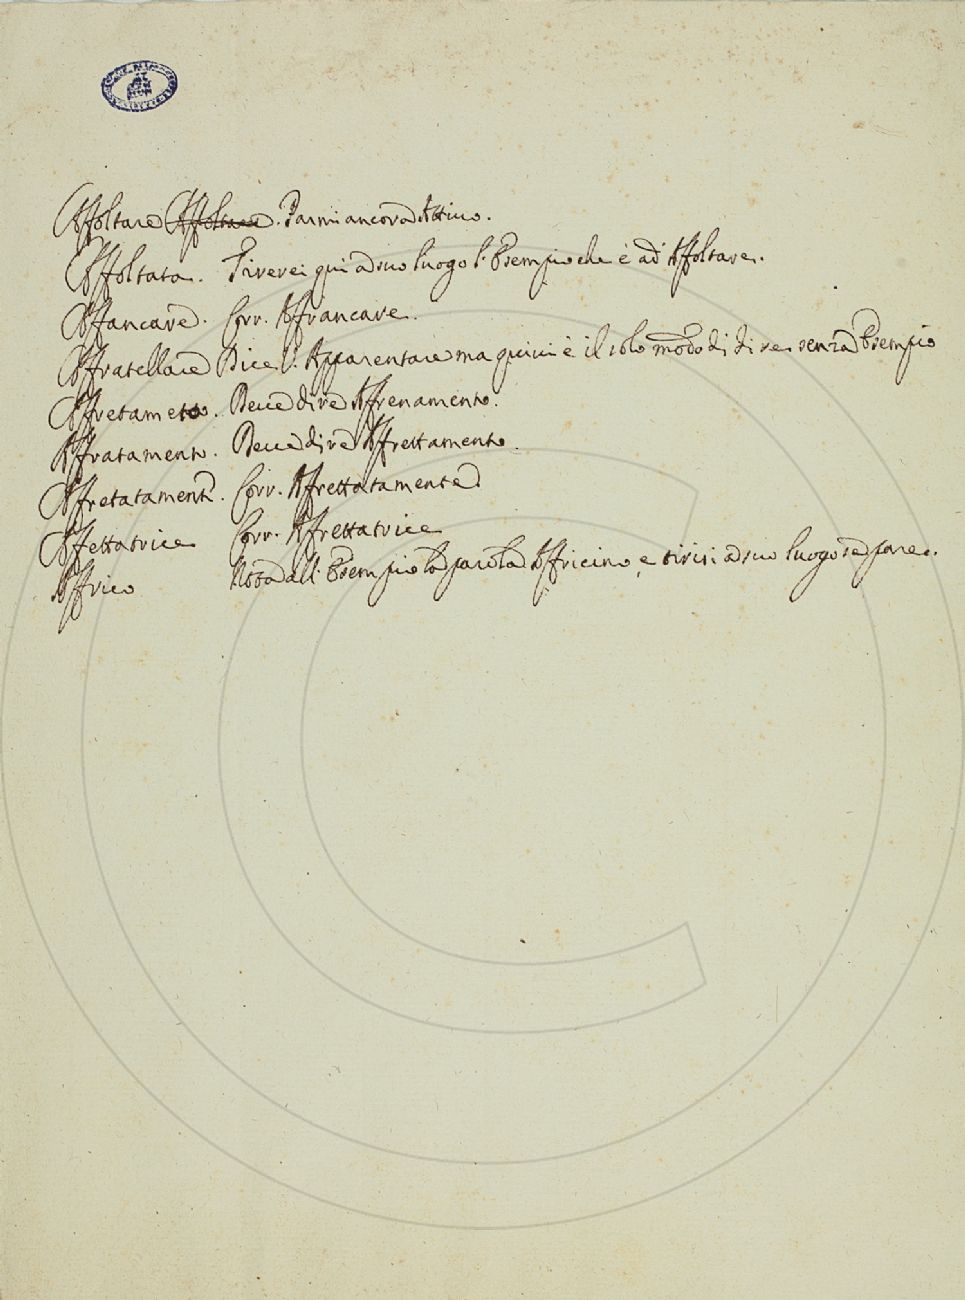 Affoltare Affoltare. Parmi ancora Attivo.
Affoltata. Tirerei qui a suo luogo l'Esempio che è ad Affoltare.
Affancare. Corr. Affrancare.
Affratellare Dice V. Apparentare ma quivi è il solo modo di dire senza Esempio
Affretametto. Deve dire Affrenamento.
Affratamento. Deve dire Affrettamento.
Affretatamente. Corr. Affrettatamente
Affettatrice Corr. Affrettatrice
Affrico Nota all'Esempio la parola Affricino, e tirisi a suo luogo se pare.